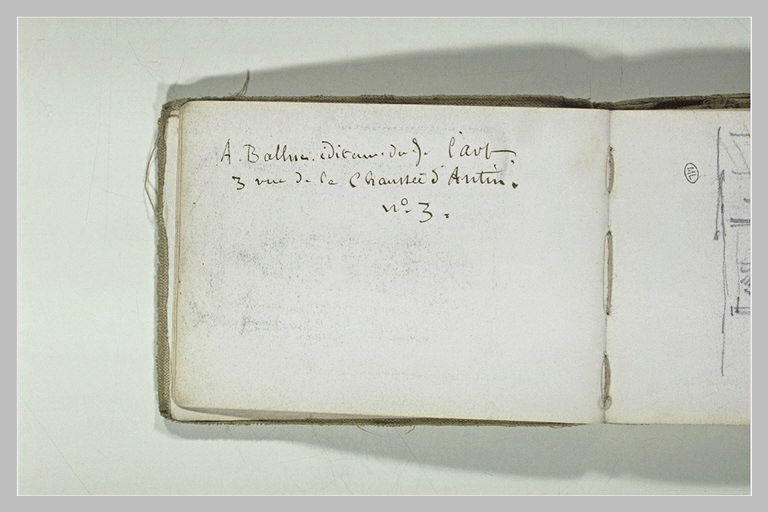 A. Ballue. éditeur. du J. l'art.
3 rue de la Chaussée d'Antin.
nº 3.
ML